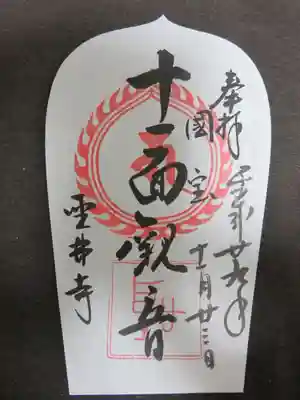 奉拝 平成廿九年
國宝 十一月廿三日
十一面觀音
聖林寺